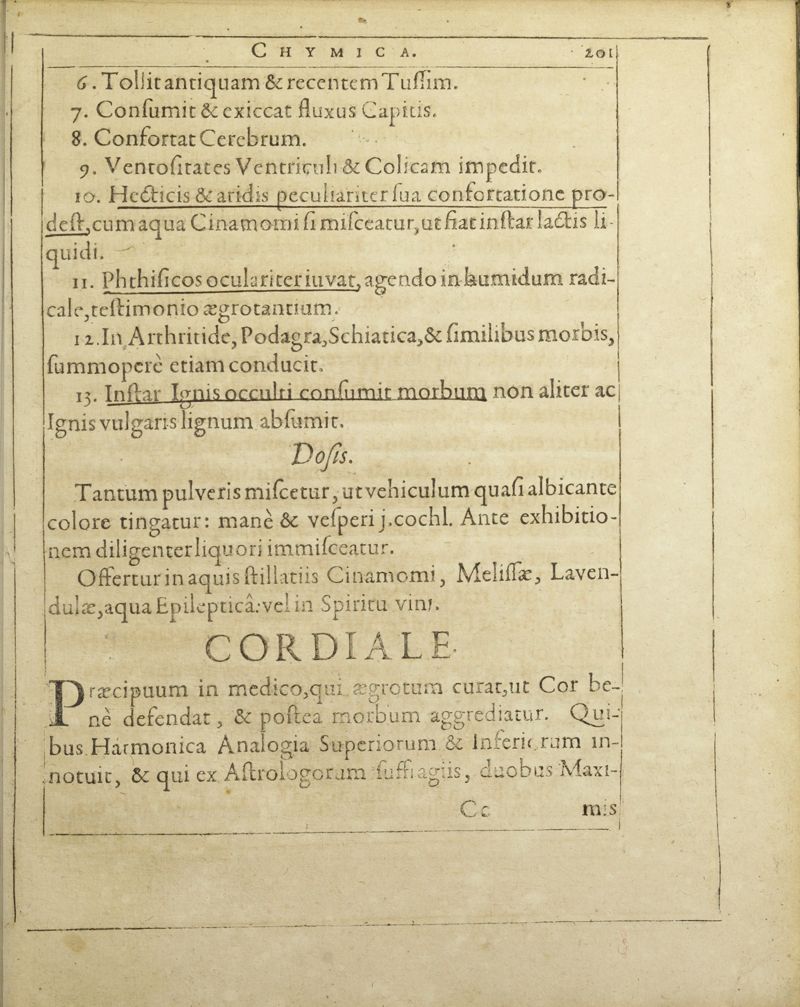 CHYMICA. 201
6. Tollit antiquam & recentem Tuſſim.
7. Conſumit & exiccat fluxus Capitis.
8. Confortat Cerebrum.
9. Ventoſitates Ventriculi & Colicam impedit.
10. Hecticis & aridis peculiariter ſua confortatione pro-
deſt, cum aqua Cinamomi ſi miſceatur, ut fiat inſtar lactis li-
quidi.
11. Phthiſicos oculariter iuvat, agendo in humidum radi-
cale, teſtimonio ægrotantium.
12. In Arthritide, Podagra, Schiatica, & ſimilibus morbis,
ſummoperè etiam conducit.
13. Inſtar Ignis occulti conſumit morbum non aliter ac
Ignis vulgaris lignum abſumit.
Doſis.
Tantum pulveris miſcetur, ut vehiculum quaſi albicante
colore tingatur: manè & veſperi j. cochl. Ante exhibitio-
nem diligenter liquori immiſceatur.
Offertur in aquis ſtillatiis Cinamomi, Meliſſæ, Laven-
dulæ, aqua Epilepticâ: vel in Spiritu vini.
CORDIALE.
Præcipuum in medico, qui ægrotum curat, ut Cor be-
nè defendat, & poſtea morbum aggrediatur. Qui-
bus Harmonica Analogia Superiorum & Inferiorum in-
notuit, & qui ex Aſtrologorum ſuffragiis, duobus Maxi-
Cc mis